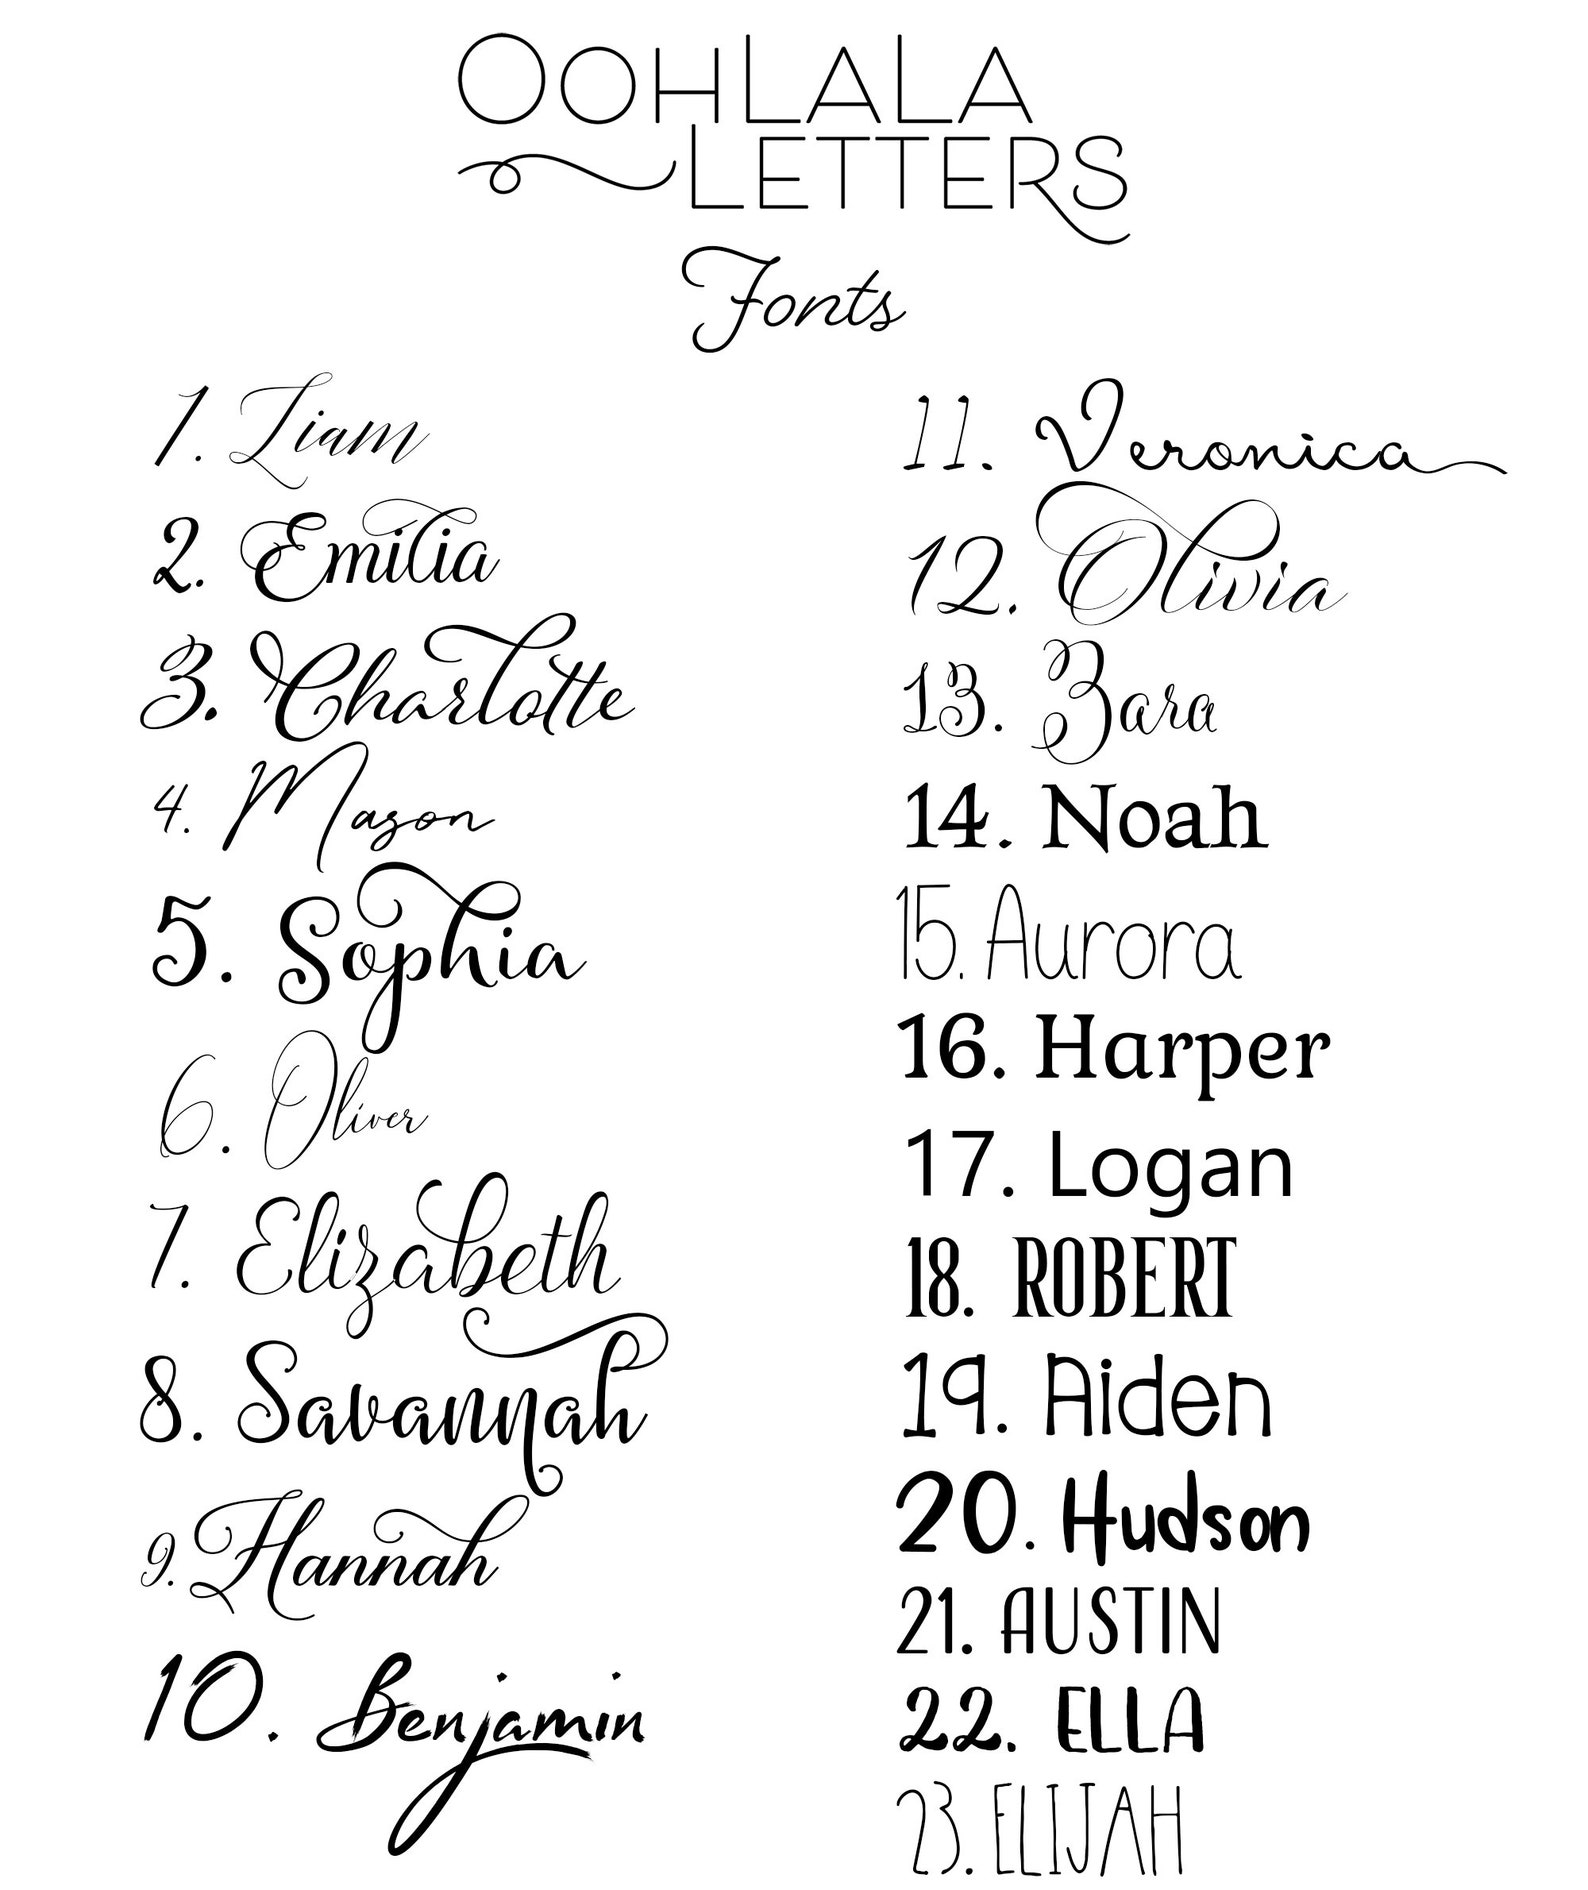 OOHLALA
LETTERS
Fonts
1. Liam
2. Emilia
3. Charlotte
4. Mason
5. Sophia
6. Oliver
7. Elizabeth
8. Savannah
9. Hannah
10. Benjamin
11. Veronica
12. Olivia
13. Zara
14. Noah
15. Aurora
16. Harper
17. Logan
18. ROBERT
19. Aiden
20. Hudson
21. AUSTIN
22. ELLA
23. ELIJAH